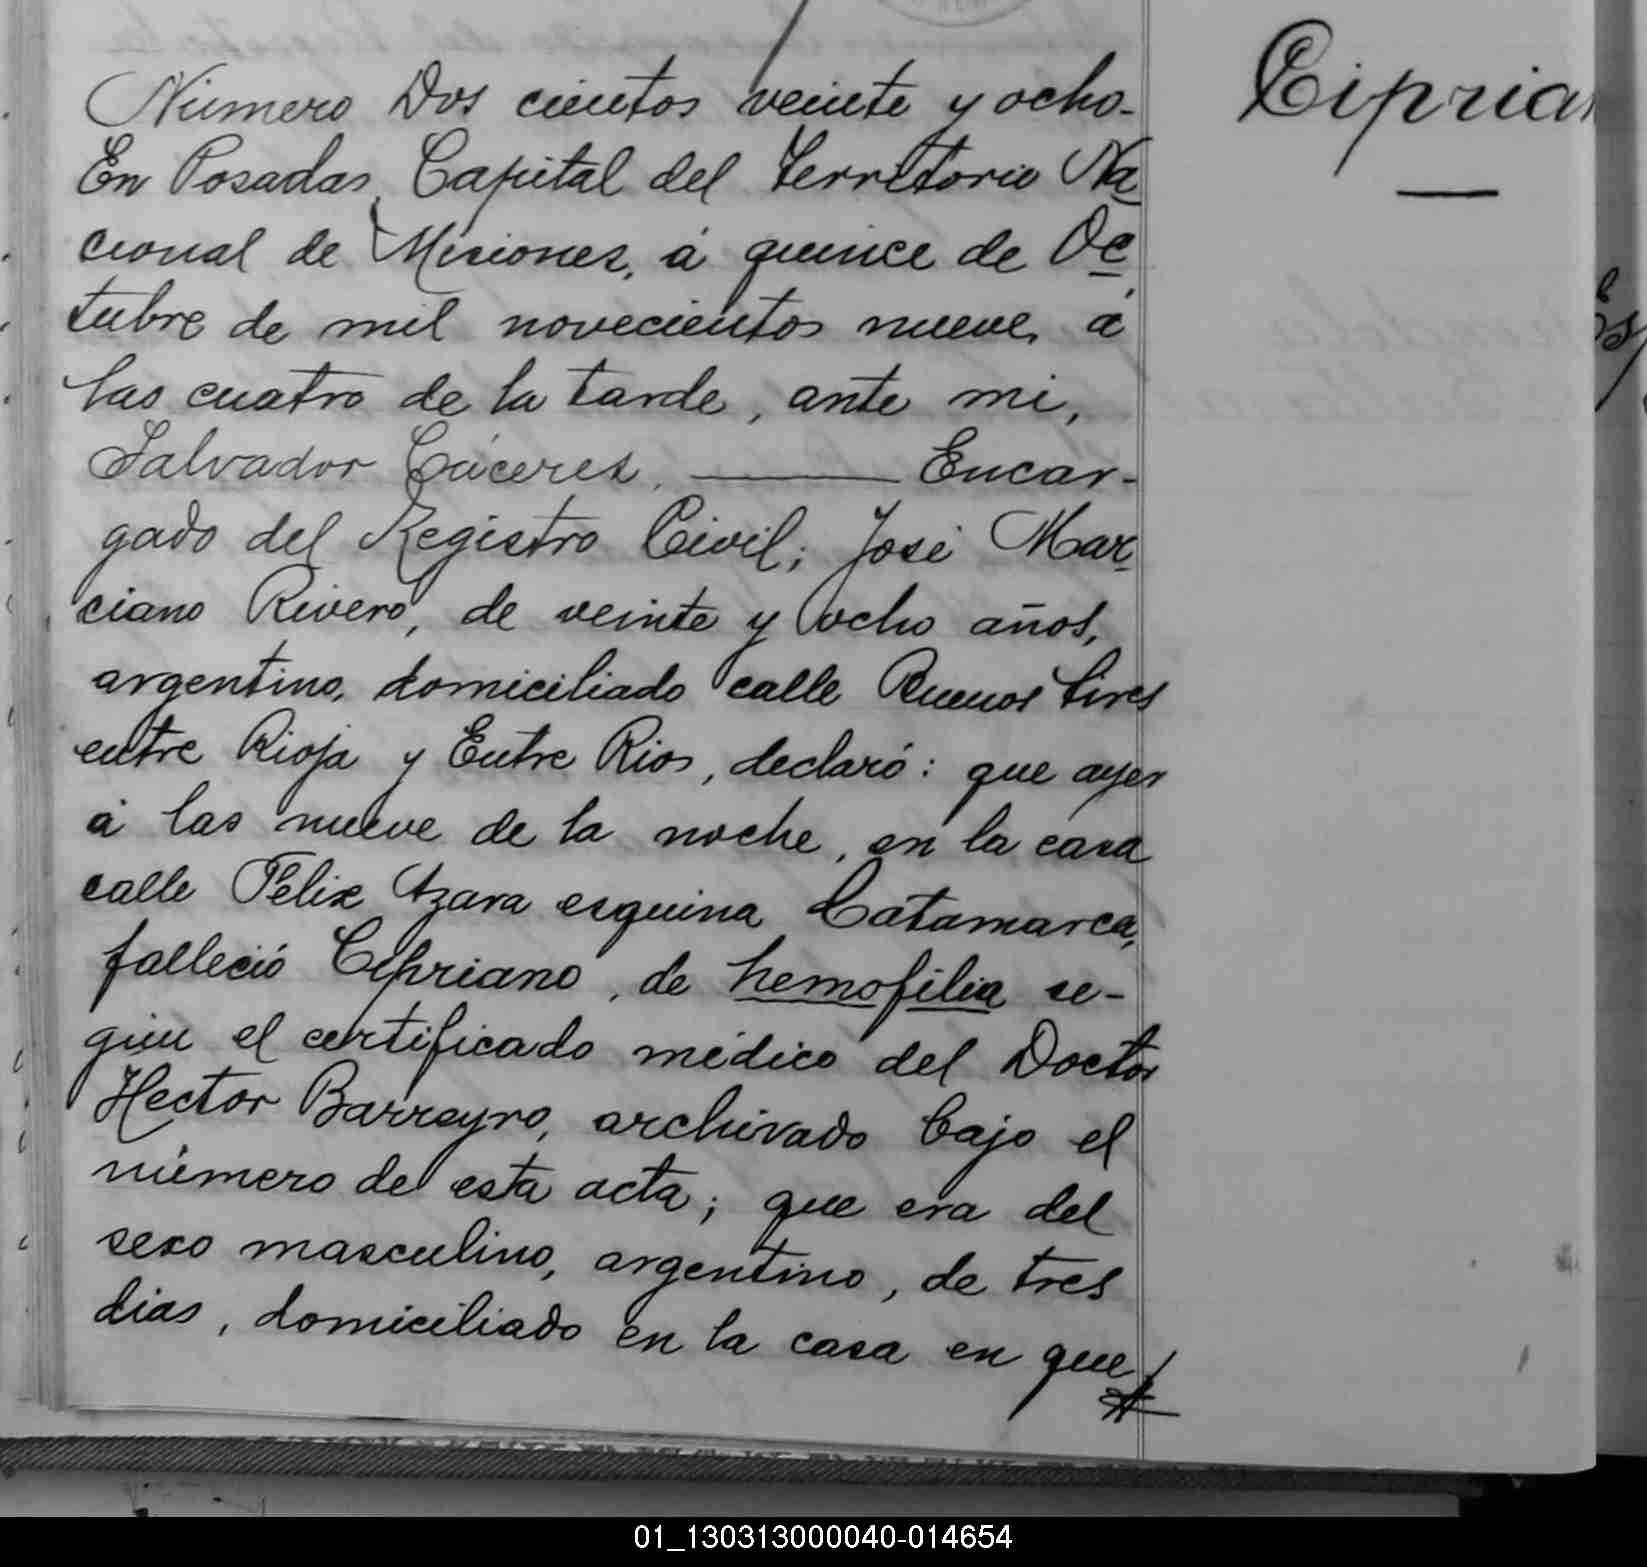 Número Dos cientos veinte y ocho-
En Posadas, Capital del Territorio Na
cional de Misiones, á quince de Oc
tubre de mil novecientos nueve, á
las cuatro de la tarde, ante mi,
Salvador Cáceres, ——— Encar-
gado del Registro Civil; José Mar
ciano Rivero, de veinte y ocho años,
argentino, domiciliado calle Buenos Aires
entre Rioja y Entre Rios, declaró: que ayer
á las nueve de la noche, en la casa
calle Felix Azara esquina Catamarca,
falleció Cipriano, de hemofilia se-
gún el certificado médico del Doctor
Hector Barreyro, archivado bajo el
número de esta acta; que era del
sexo masculino, argentino, de tres
dias, domiciliado en la casa en que
Ciprian
01_130313000040-014654